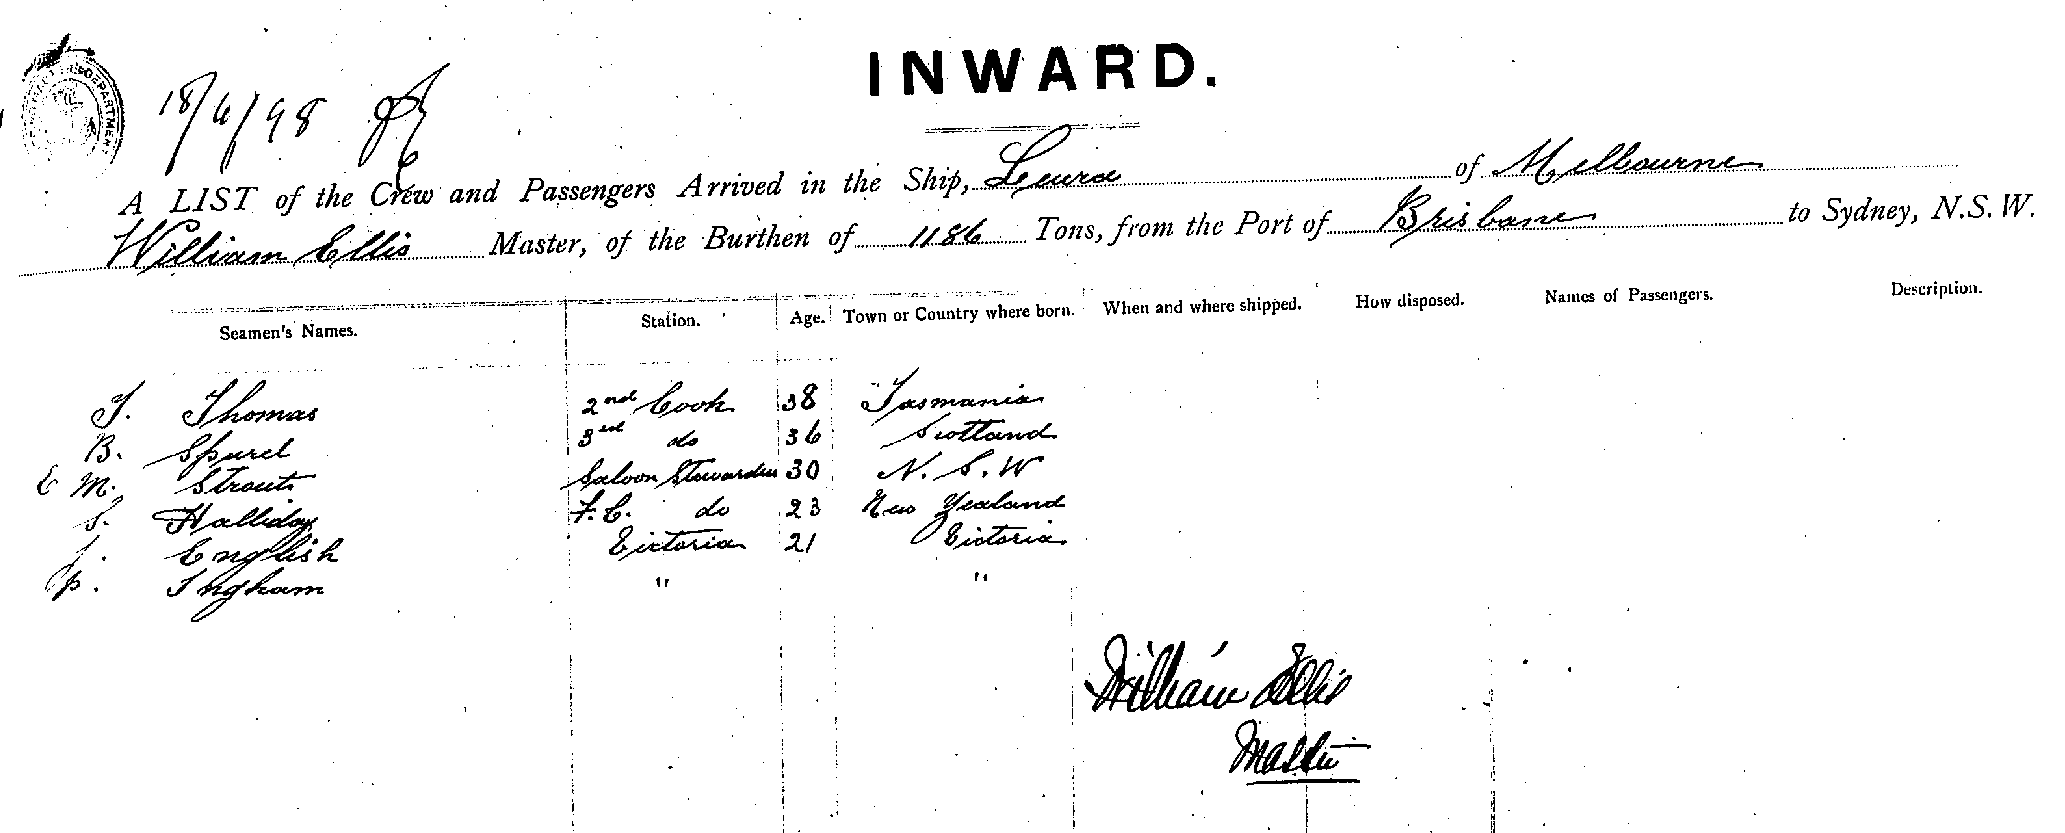 INWARD.
DEPARTMENT
18/6/98
A LIST of the Crew and Passengers Arrived in the Ship, Leura of Melbourne
William Ellis Master, of the Burthen of 1186 Tons, from the Port of Brisbane to Sydney, N.S.W.
Seamen's Names. Station. Age. Town or Country where born. When and where shipped. How disposed. Names of Passengers. Description.
T. Thomas 2nd Cook 38 Tasmania
B. Spurel 3rd do 36 Scotland
E M. Strouts Saloon Stewardess 30 N. S. W
S. Halliday F. C. do 23 New Zealand
J. English Victoria 21 Victoria
P. Ingham " "
William Ellis
Master